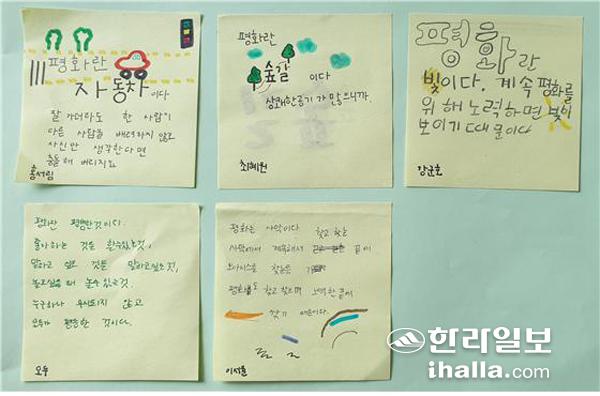 평화란
자동차 이다
잘 가더라도 한 사람이
다른 사람을 배려하지 않고
자신만 생각한다면
충돌해 버리지요
홍서림
평화란
숲길 이다
상쾌한 공기가 많으니까.
최혜원
평화란
빛이다. 계속 평화를
위해 노력하면 빛이
보이기 때문이다
강군호
평화란 평등한 것이다.
좋아하는 것은 할수있는것,
말하고 싶은 것을 말하고싶은것,
놀고싶을 때 놀수 있는것.
누군하나 무시되지 않고
모두가 평등한 것이다.
모두
평화는 사막이다 찾고 찾는
사막에서 계속해서 끝에
오아시스를 찾는
평화도 찾고 찾으며 노력한 끝에
찾기 때문이다.
이서준
한라일보
ihalla.com